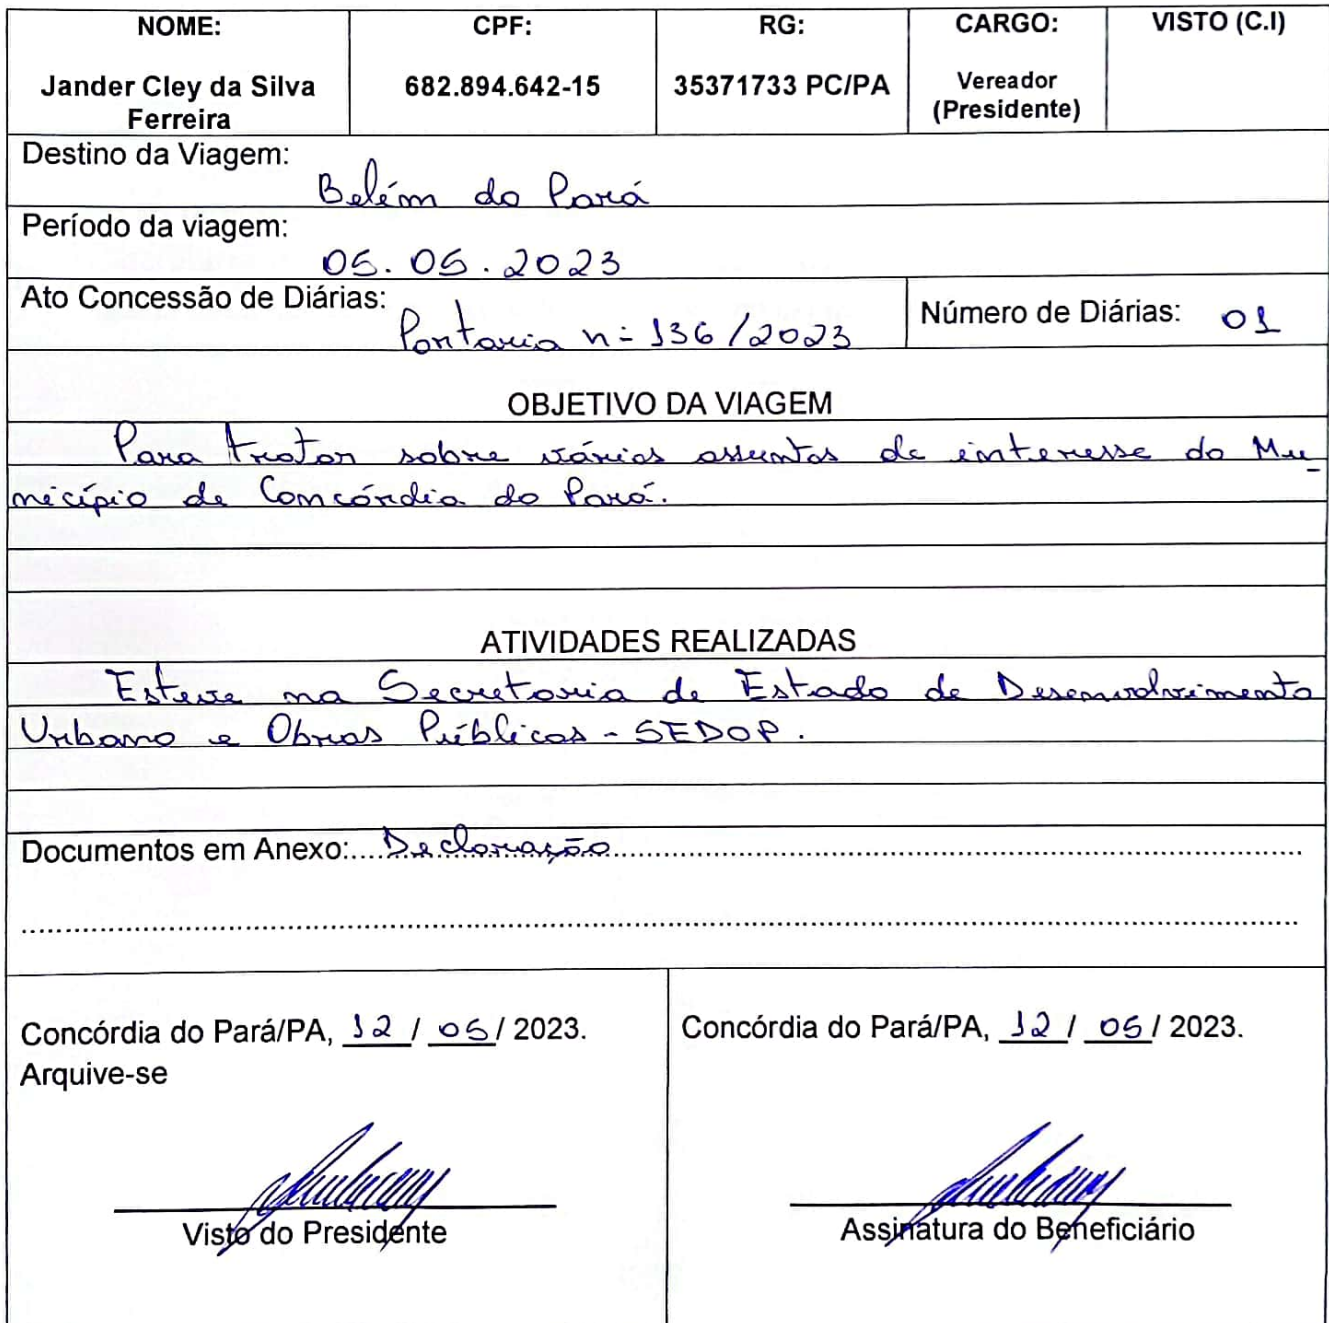 NOME: CPF: RG: CARGO: VISTO (C.I)
Jander Cley da Silva Ferreira 682.894.642-15 35371733 PC/PA Vereador (Presidente)
Destino da Viagem:
Belém do Pará
Período da viagem:
05.05.2023
Ato Concessão de Diárias:
Portaria nº 136/2023
Número de Diárias: 01
OBJETIVO DA VIAGEM
Para tratar sobre vários assuntos de interesse do Mu-
nicípio de Concórdia do Pará.
ATIVIDADES REALIZADAS
Esteve na Secretaria de Estado de Desenvolvimento
Urbano e Obras Públicas - SEDOP.
Documentos em Anexo:....Declaração
Concórdia do Pará/PA, 12 / 05 / 2023.
Arquive-se
Visto do Presidente
Concórdia do Pará/PA, 12 / 05 / 2023.
Assinatura do Beneficiário